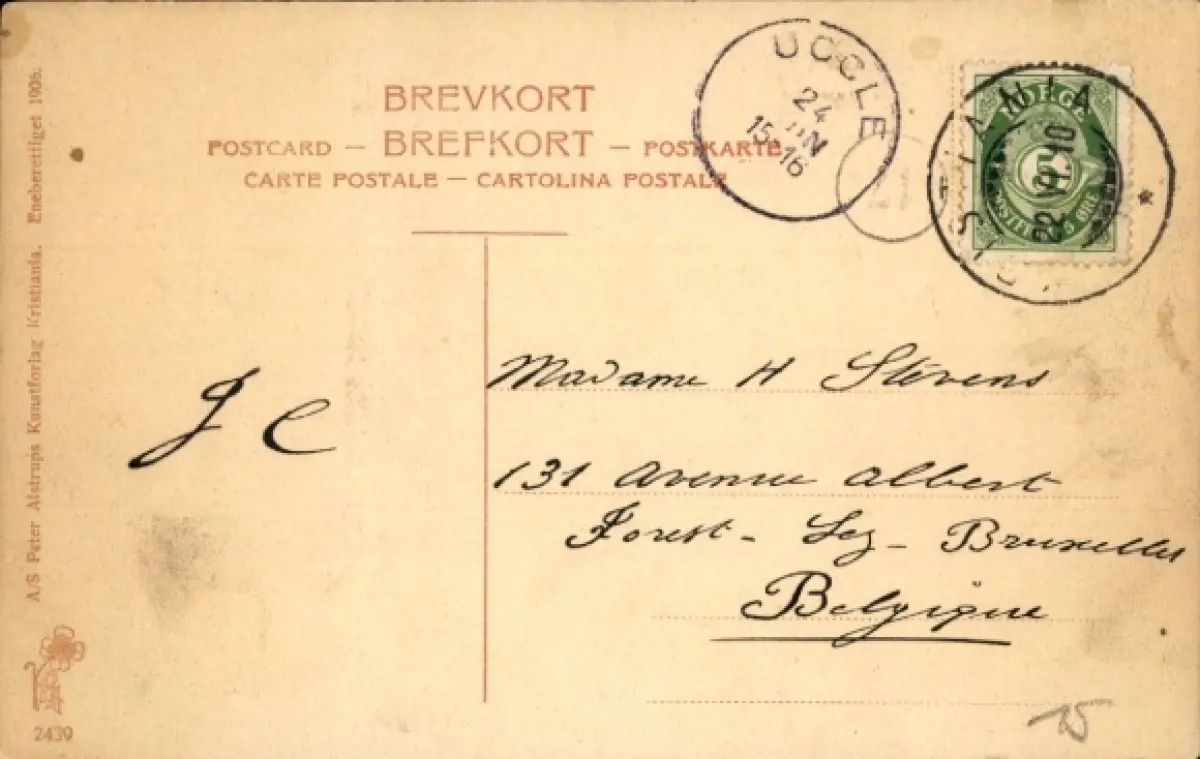 BREVKORT
POSTCARD — BREFKORT — POSTKARTE
CARTE POSTALE — CARTOLINA POSTALE
UCCLE
24
JUN
15-16
NORGE
5
22 VI 10
J C
Madame H Stévens
131 Avenue Albert
Forest - Lez - Bruxelles
Belgique
A/S Peter Alstrups Kunstforlag Kristiania. Eneberettiget 1906.
2439